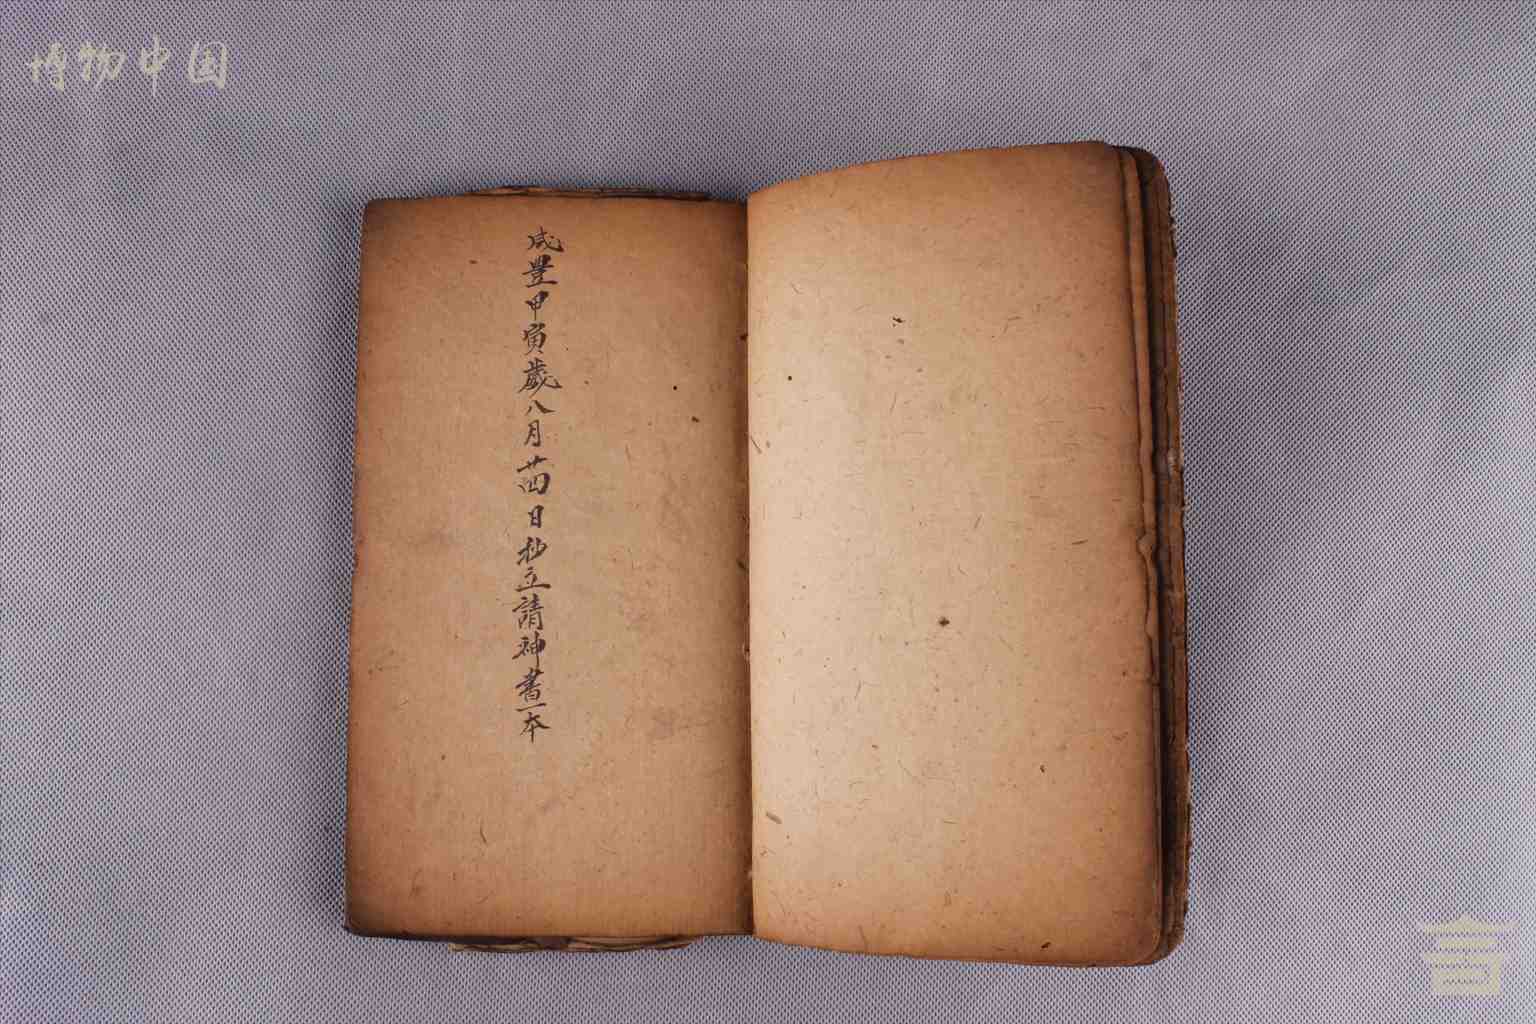 博物中国
咸豐甲寅歲八月廿四日抄立請神書一本